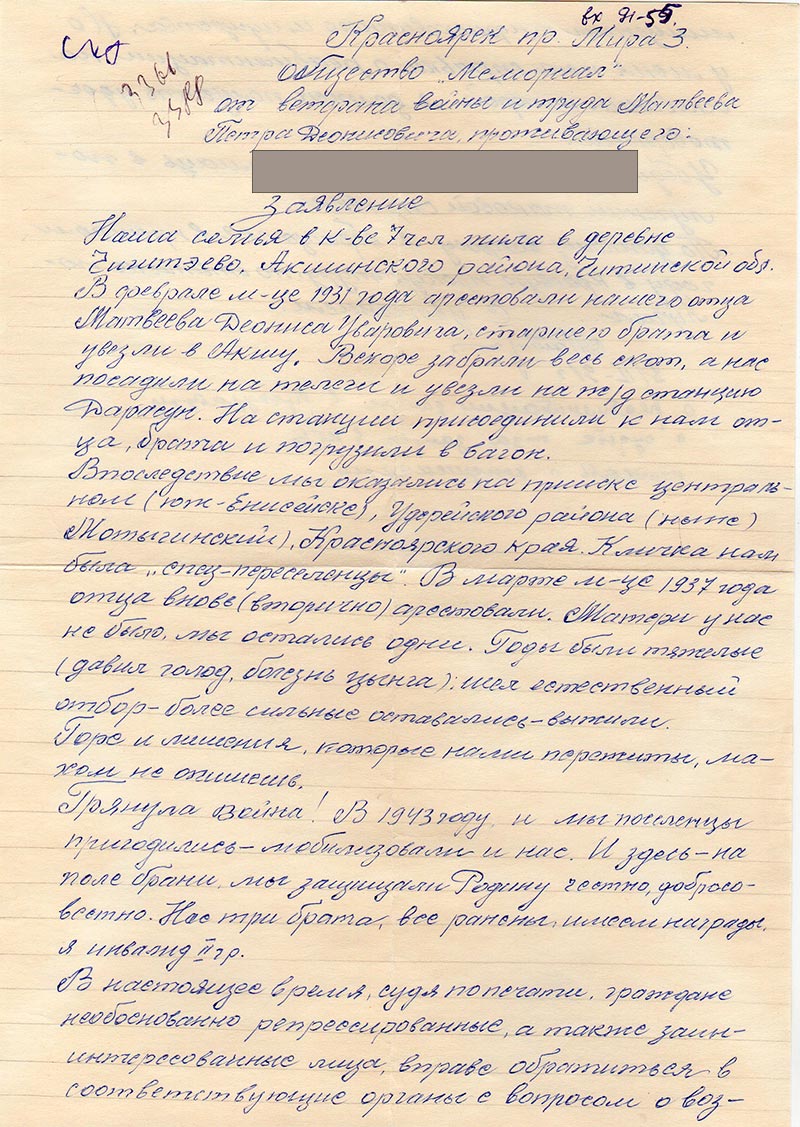 вх 91-55.
Красноярск пр. Мира 3.
общество „Мемориал"
3366
от ветерана войны и труда Матвеева
Петра Деонисовича, проживающего:
Заявление
Наша семья в к-ве 7 чел. жила в деревне
Чиптэево, Акшинского района, Читинской обл.
В феврале м-це 1931 года арестовали нашего отца
Матвеева Деониса Уваровича, старшего брата и
увезли в Акшу. Вскоре забрали весь скот, а нас
посадили на телеги и увезли на ж/д станцию
Дарасун. На станции присоединили к нам от-
ца, брата и погрузили в вагон.
Впоследствие мы оказались на прииске централь-
ном (юж-Енисейске), Удерейского района (ныне)
Мотыгинский), Красноярского края. Кличка нам
была „спец-переселенцы". В марте м-це 1937 года
отца вновь (вторично) арестовали. Матери у нас
не было, мы остались одни. Годы были тяжелые
(давил голод, болезнь цынга); шел естественный
отбор - более сильные оставались - выжили.
Горе и лишения, которые нами пережиты, ма-
хом не опишешь.
Грянула война! В 1943 году и мы поселенцы
пригодились - мобилизовали и нас. И здесь - на
поле брани, мы защищали Родину честно, добросо-
вестно. Нас три брата, все ранены, имеем награды,
я инвалид II гр.
В настоящее время, судя по печати, граждане
необоснованно репрессированные, а также заин-
интересованные лица, вправе обратиться в
соответствующие органы с вопросом о воз-